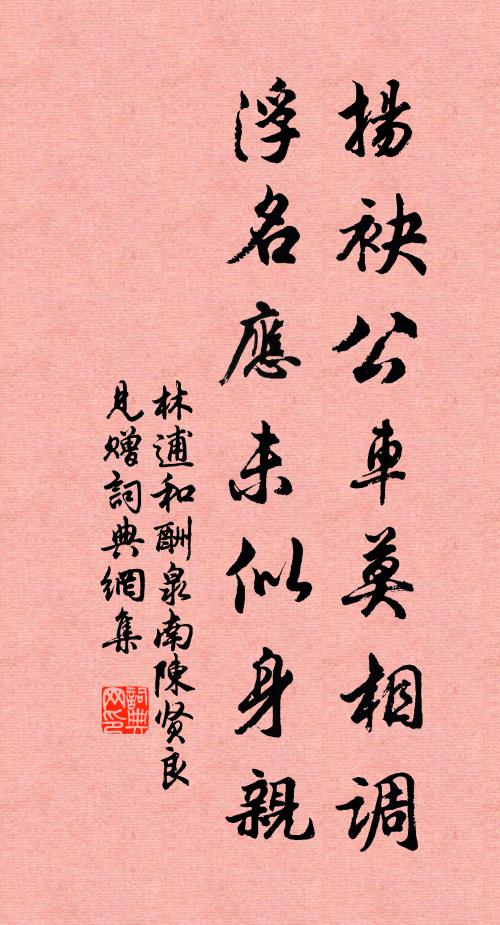 揚袂公車莫相調
浮名應未似身親
林逋和酬泉南陳贤良
見赠詞典網集
詞典网印